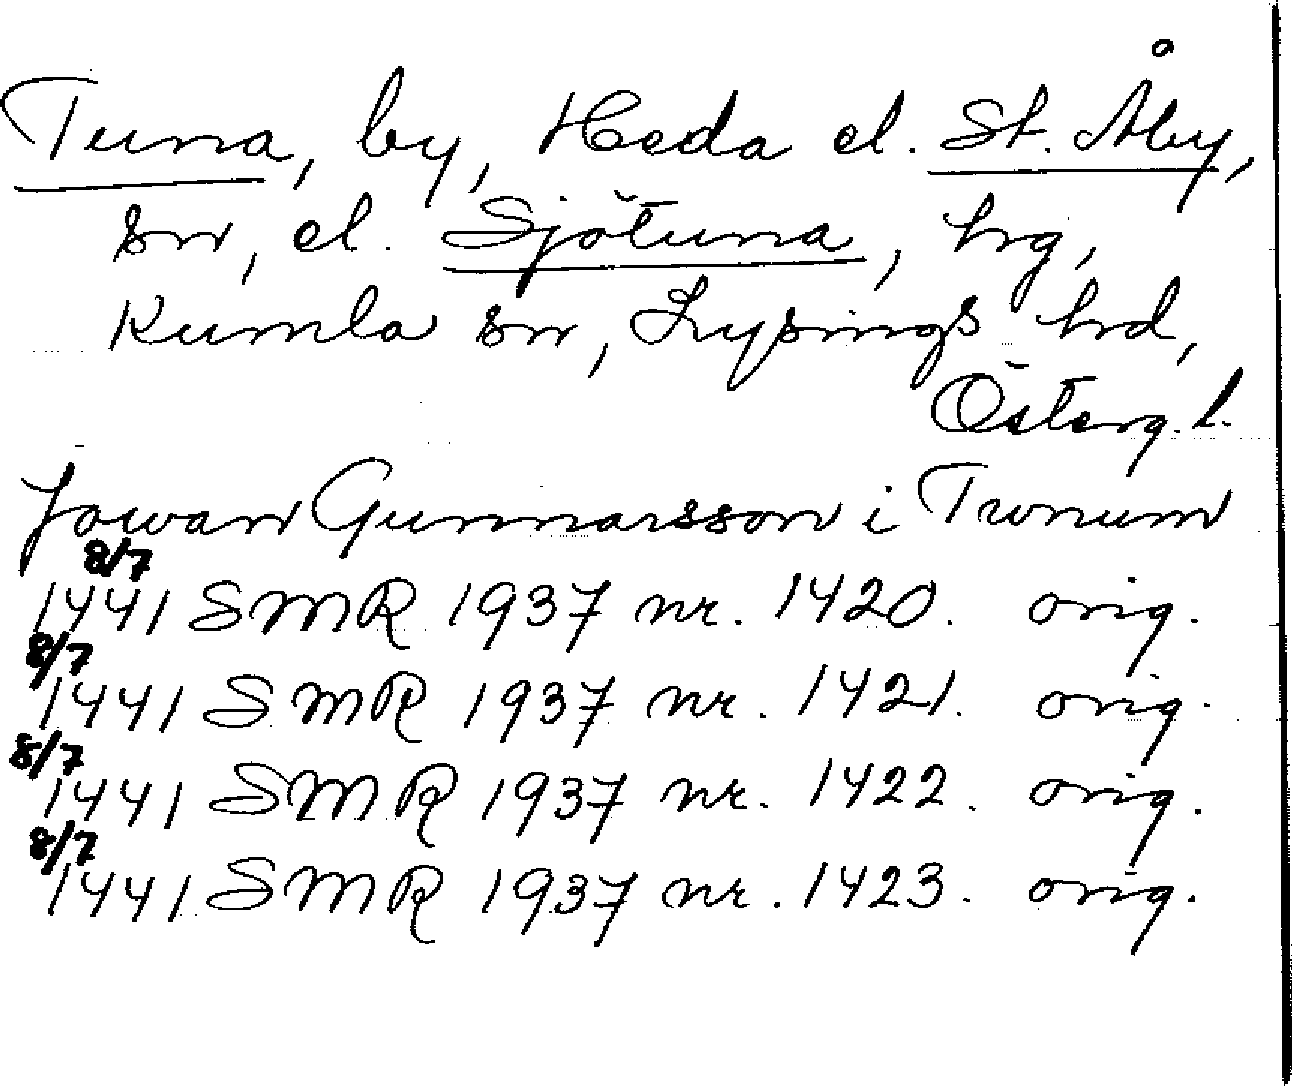 Tuna, by, Heda el. St. Åby,
sn, el. Sjötuna, hg,
Kumla sn, Lysings hd,
Österg. l.
Jowan Gunnarsson i Twnum
8/7
1441 SMR 1937 nr. 1420. orig.
8/7
1441 SMR 1937 nr. 1421. orig.
8/7
1441 SMR 1937 nr. 1422. orig.
8/7
1441 SMR 1937 nr. 1423. orig.